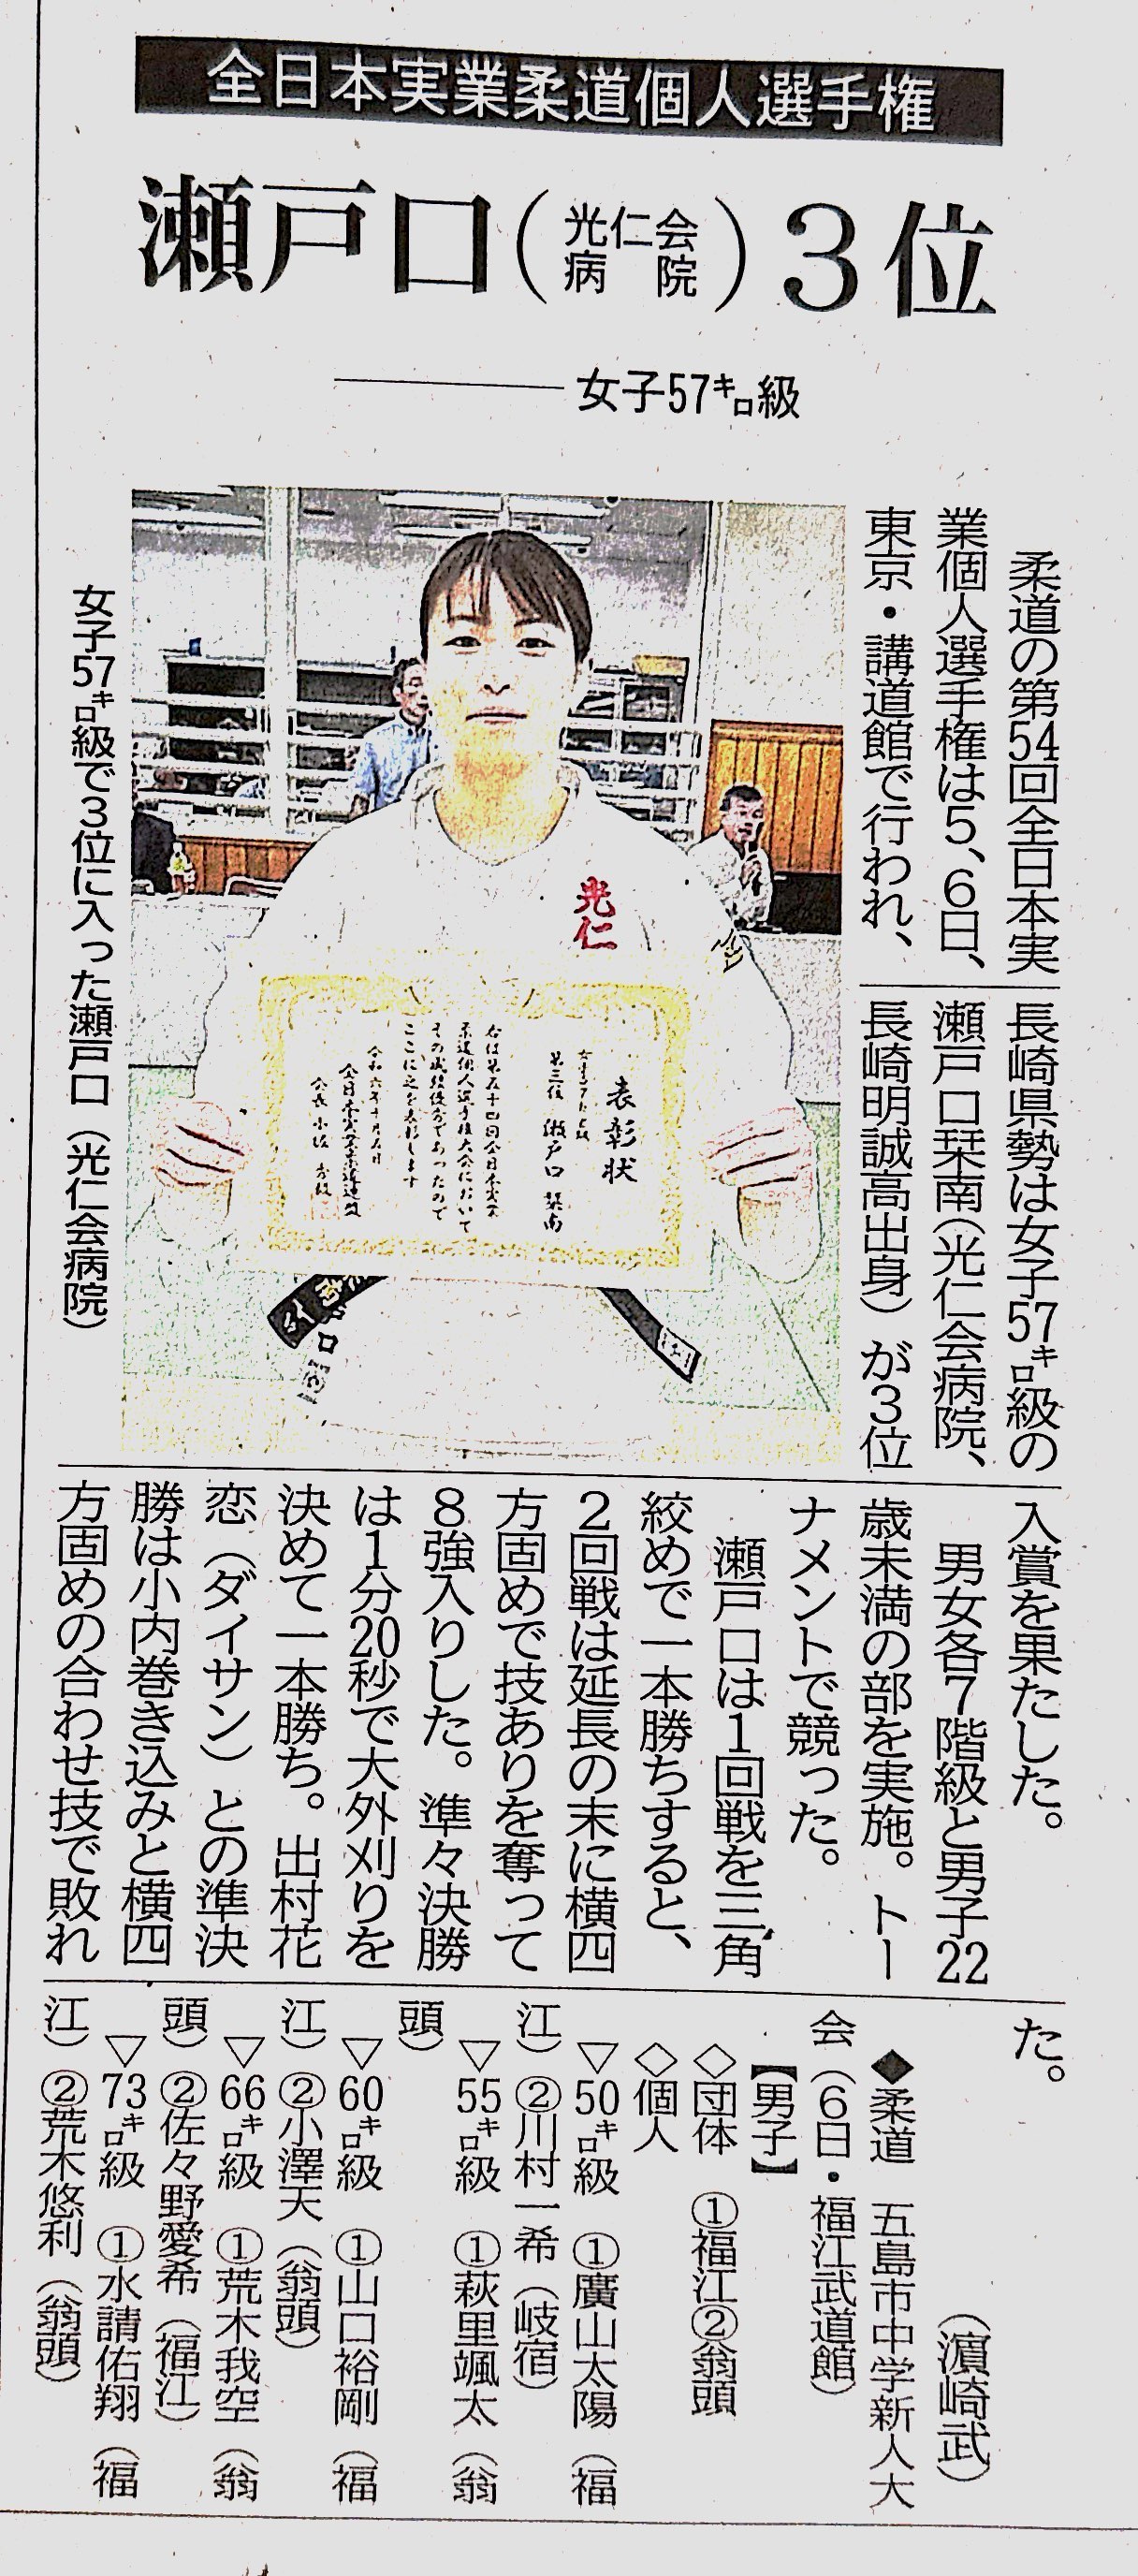 全日本実業柔道個人選手権
瀬戸口(光仁会病院)3位
女子57㌔級
柔道の第54回全日本実
業個人選手権は5、6日、
東京・講道館で行われ、
長崎県勢は女子57㌔級の
瀬戸口栞南(光仁会病院、
長崎明誠高出身)が3位
入賞を果たした。
男女各7階級と男子22
歳未満の部を実施。トー
ナメントで競った。
瀬戸口は1回戦を三角
絞めで一本勝ちすると、
2回戦は延長の末に横四
方固めで技ありを奪って
8強入りした。準々決勝
は1分20秒で大外刈りを
決めて一本勝ち。出村花
恋(ダイサン)との準決
勝は小内巻き込みと横四
方固めの合わせ技で敗れ
た。
(濵崎武)
女子57㌔級で3位に入った瀬戸口(光仁会病院)
光仁
表彰状
女子57㌔級
第三位 瀬戸口 栞南
右は第五十四回全日本実業
柔道個人選手権大会において
その成績優秀であったので
ここに之を表彰します
令和六年十月五日
全日本実業柔道連盟
◆柔道 五島市中学新人大
会(6日・福江武道館)
【男子】
◇団体 ①福江②翁頭
◇個人
▽50㌔級 ①廣山太陽(福
江)②川村一希(岐宿)
▽55㌔級 ①萩里颯太(翁
頭)
▽60㌔級 ①山口裕剛(福
江)②小澤天(翁頭)
▽66㌔級 ①荒木我空(翁
頭)②佐々野愛希(福江)
▽73㌔級 ①水請佑翔(福
江)②荒木悠利(翁頭)